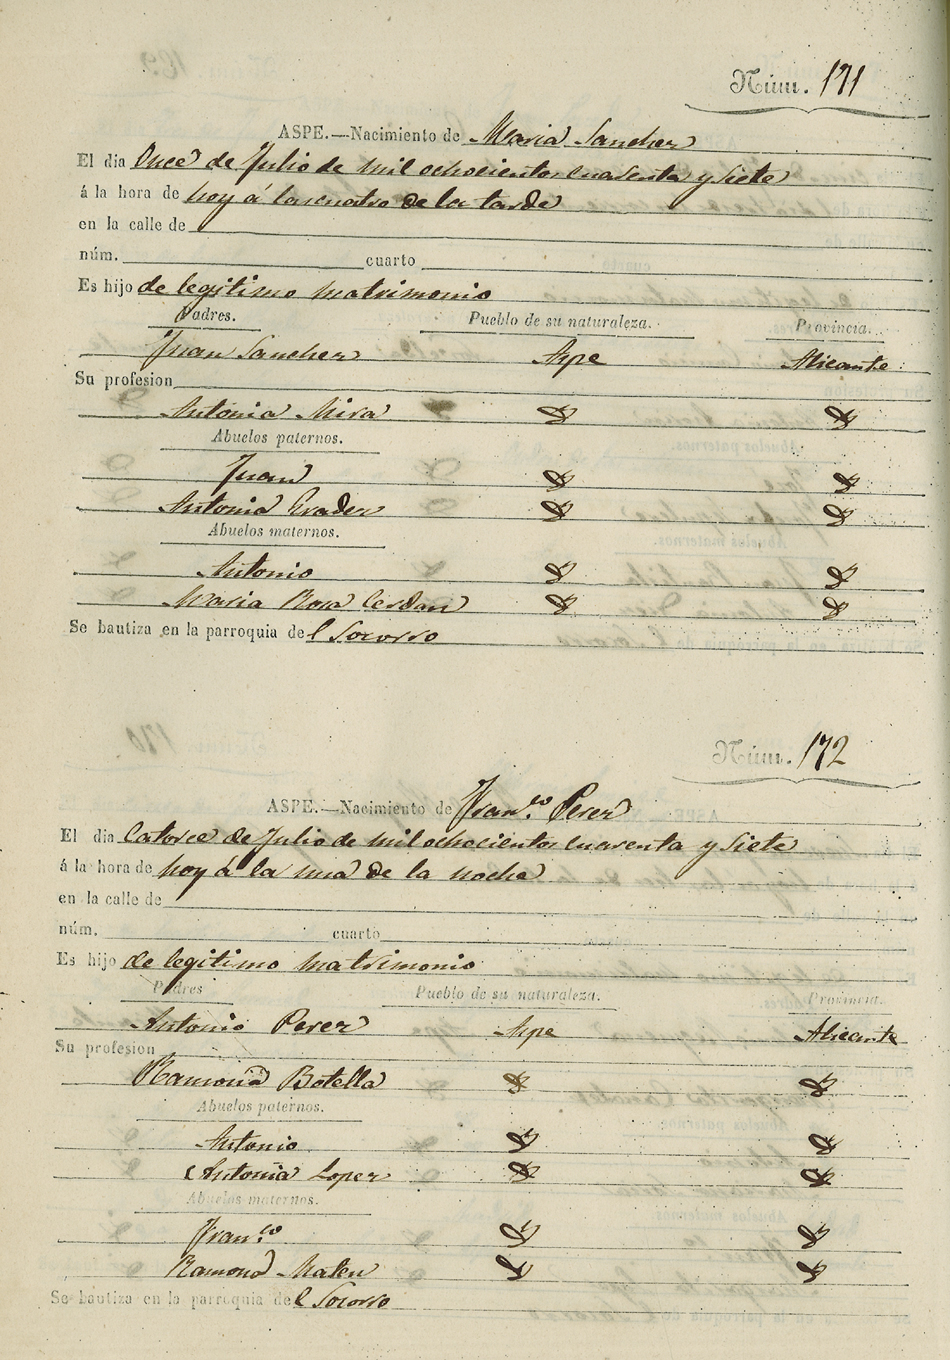 Núm. 171
ASPE.—Nacimiento de Maria Sanchez
El dia Once de Julio de mil ochocientos cuarenta y siete
á la hora de hoy á las cuatro de la tarde
en la calle de
núm. cuarto
Es hijo de legitimo matrimonio
Padres. Pueblo de su naturaleza. Provincia.
Juan Sanchez Aspe Alicante
Su profesion
Antonia Mira
Abuelos paternos.
Juan
Antonia
Abuelos maternos.
Antonio
Maria Rosa Cerdan
Se bautiza en la parroquia del Socorro
Núm. 172
ASPE.—Nacimiento de Fran.co Perez
El dia Catorce de Julio de mil ochocientos cuarenta y siete
á la hora de hoy á la una de la noche
en la calle de
núm. cuarto
Es hijo de legitimo matrimonio
Padres Pueblo de su naturaleza. Provincia.
Antonio Perez Aspe Alicante
Su profesion
Ramona Botella
Abuelos paternos.
Antonio
Antonia Lopez
Abuelos maternos.
Fran.co
Ramona
Se bautiza en la parroquia del Socorro